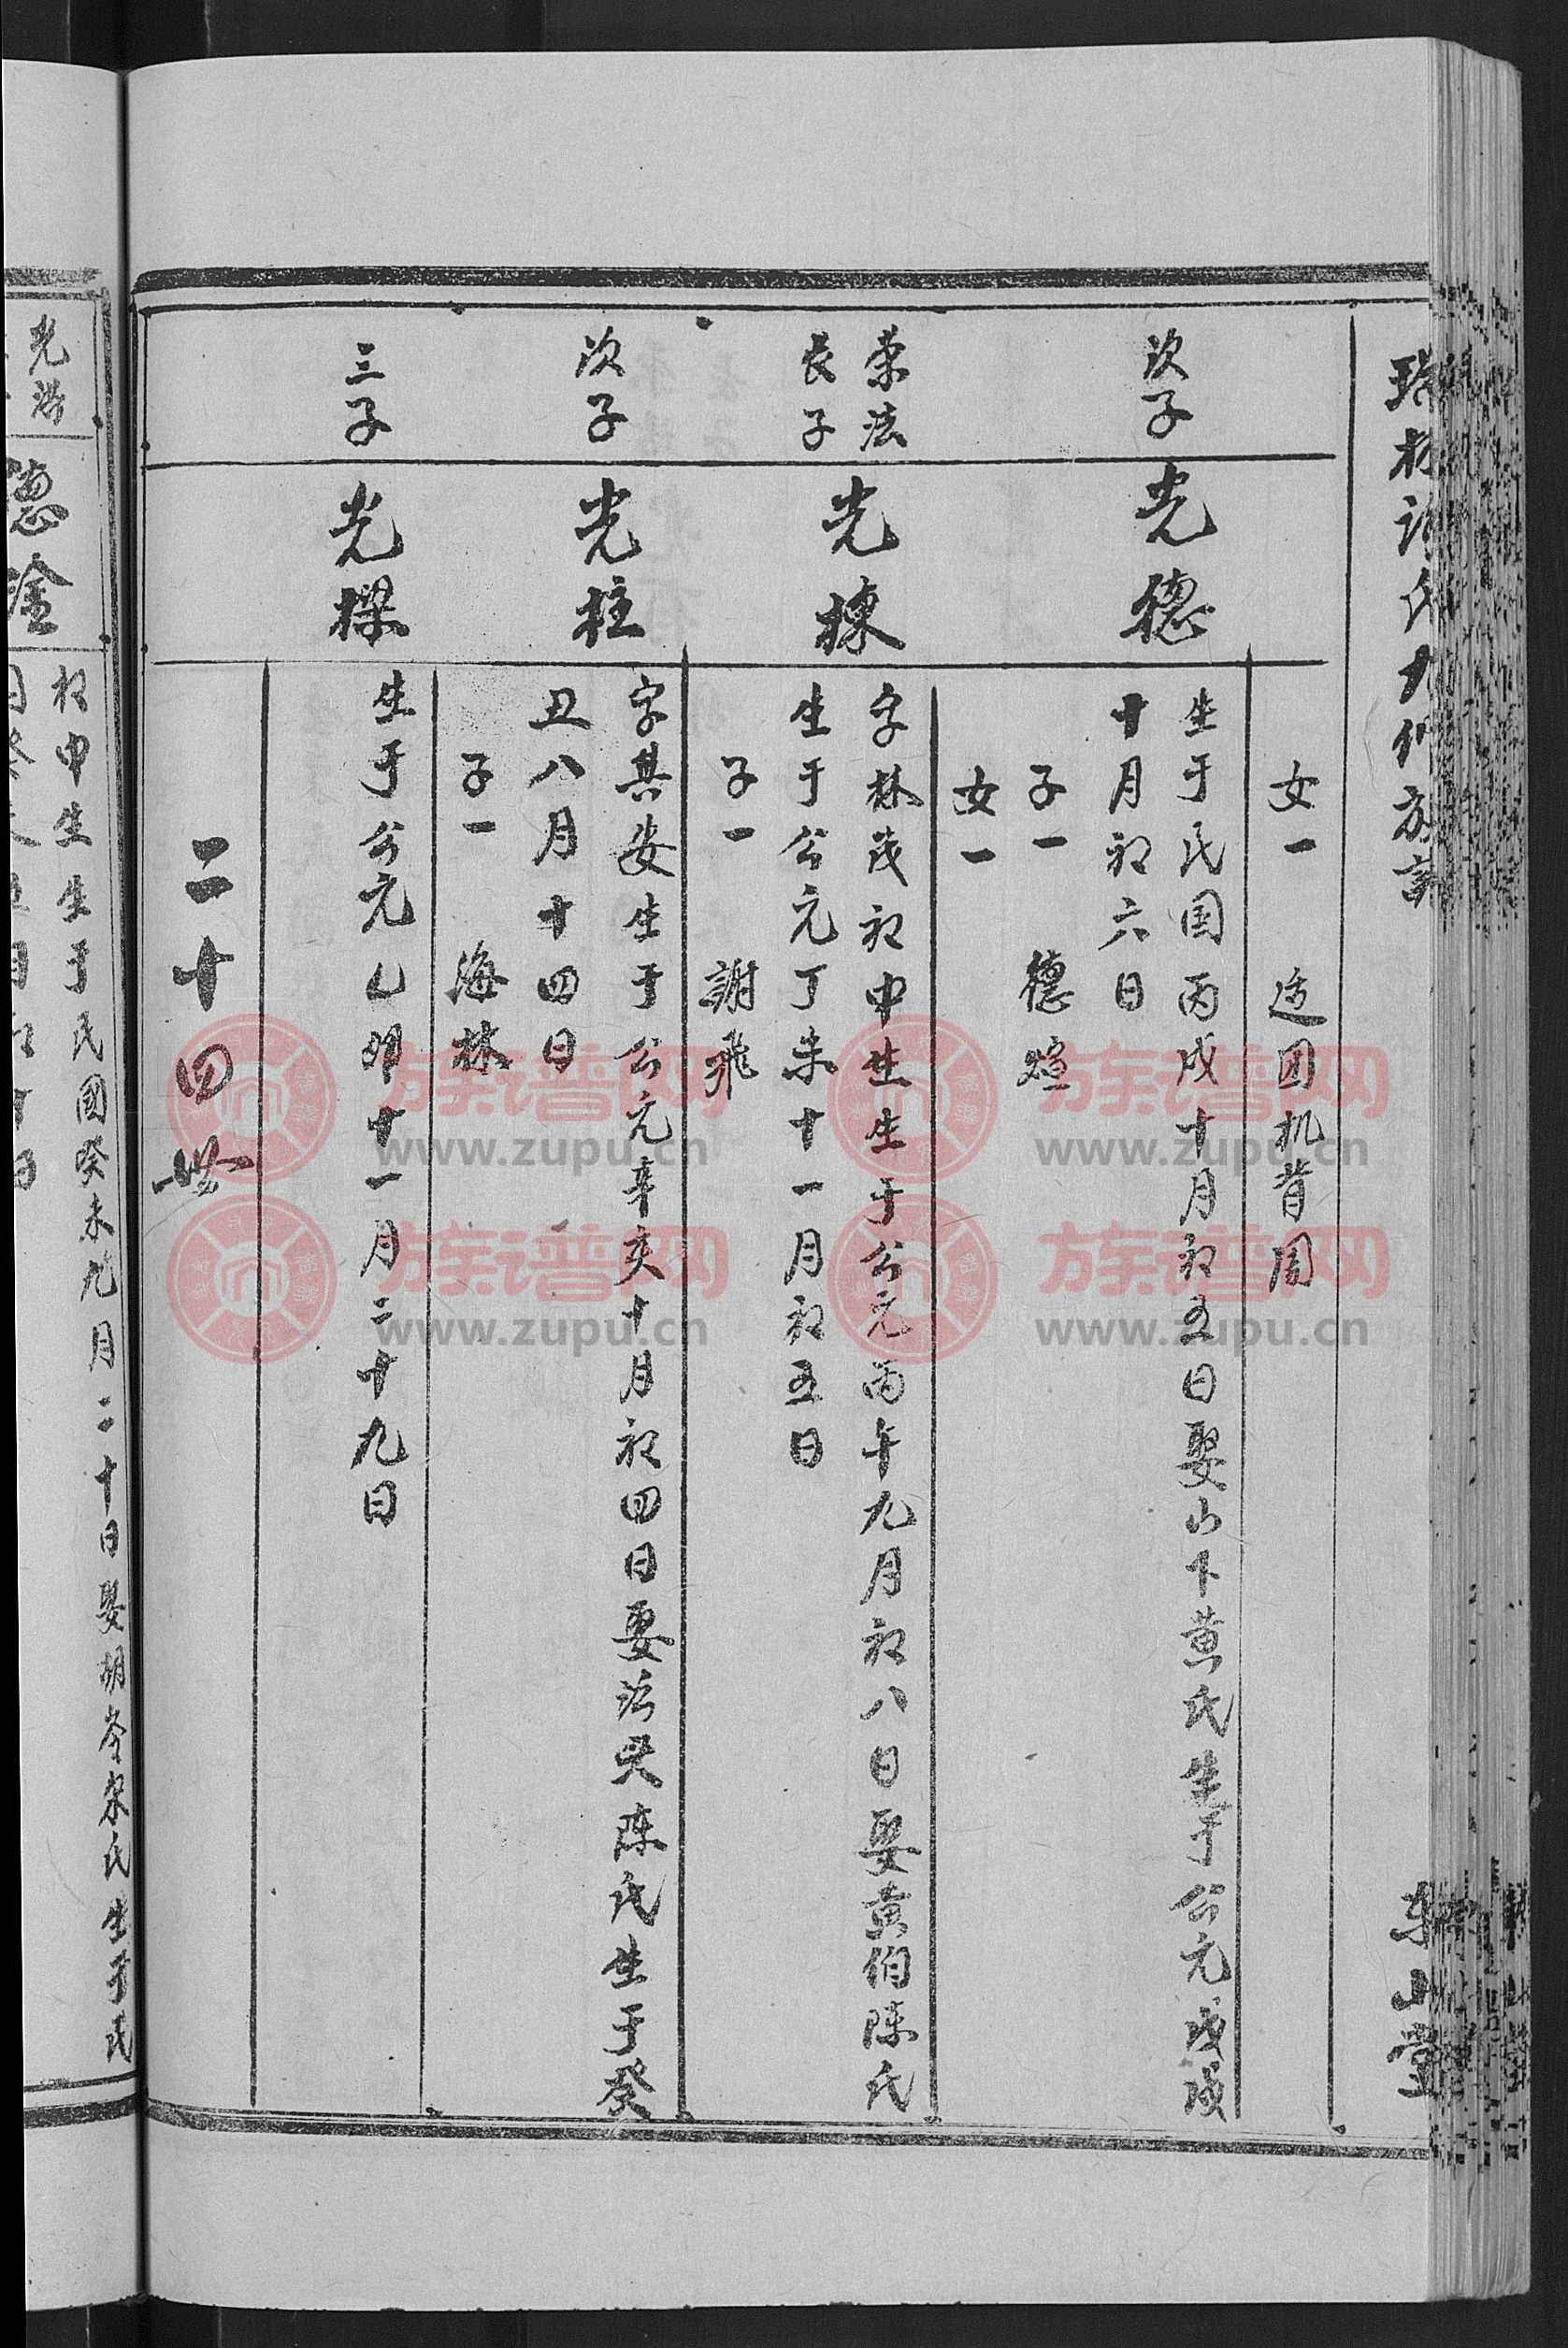 东山堂
女一 适团机背周
次子
光德
生于民国丙戌十月初五日娶山下黄氏生于公元戊
十月初六日
子一 德煊
女一
荣法
长子
光栋
字林茂初中生生于公元丙午九月初八日娶黄伯陈氏
生于公元丁未十一月初五日
子一 謝飛
次子
光柱
字其安生于公元辛亥十月初四日娶 陈氏生于癸
丑八月十四日
子一 海林
三子
光樑
生于公元乙卯十一月二十九日
二十四世
德淦
初中生生于民國癸未九月二十日娶胡 宋氏生于民
族谱网
www.zupu.cn
族谱网
www.zupu.cn
族谱网
www.zupu.cn
族谱网
www.zupu.cn